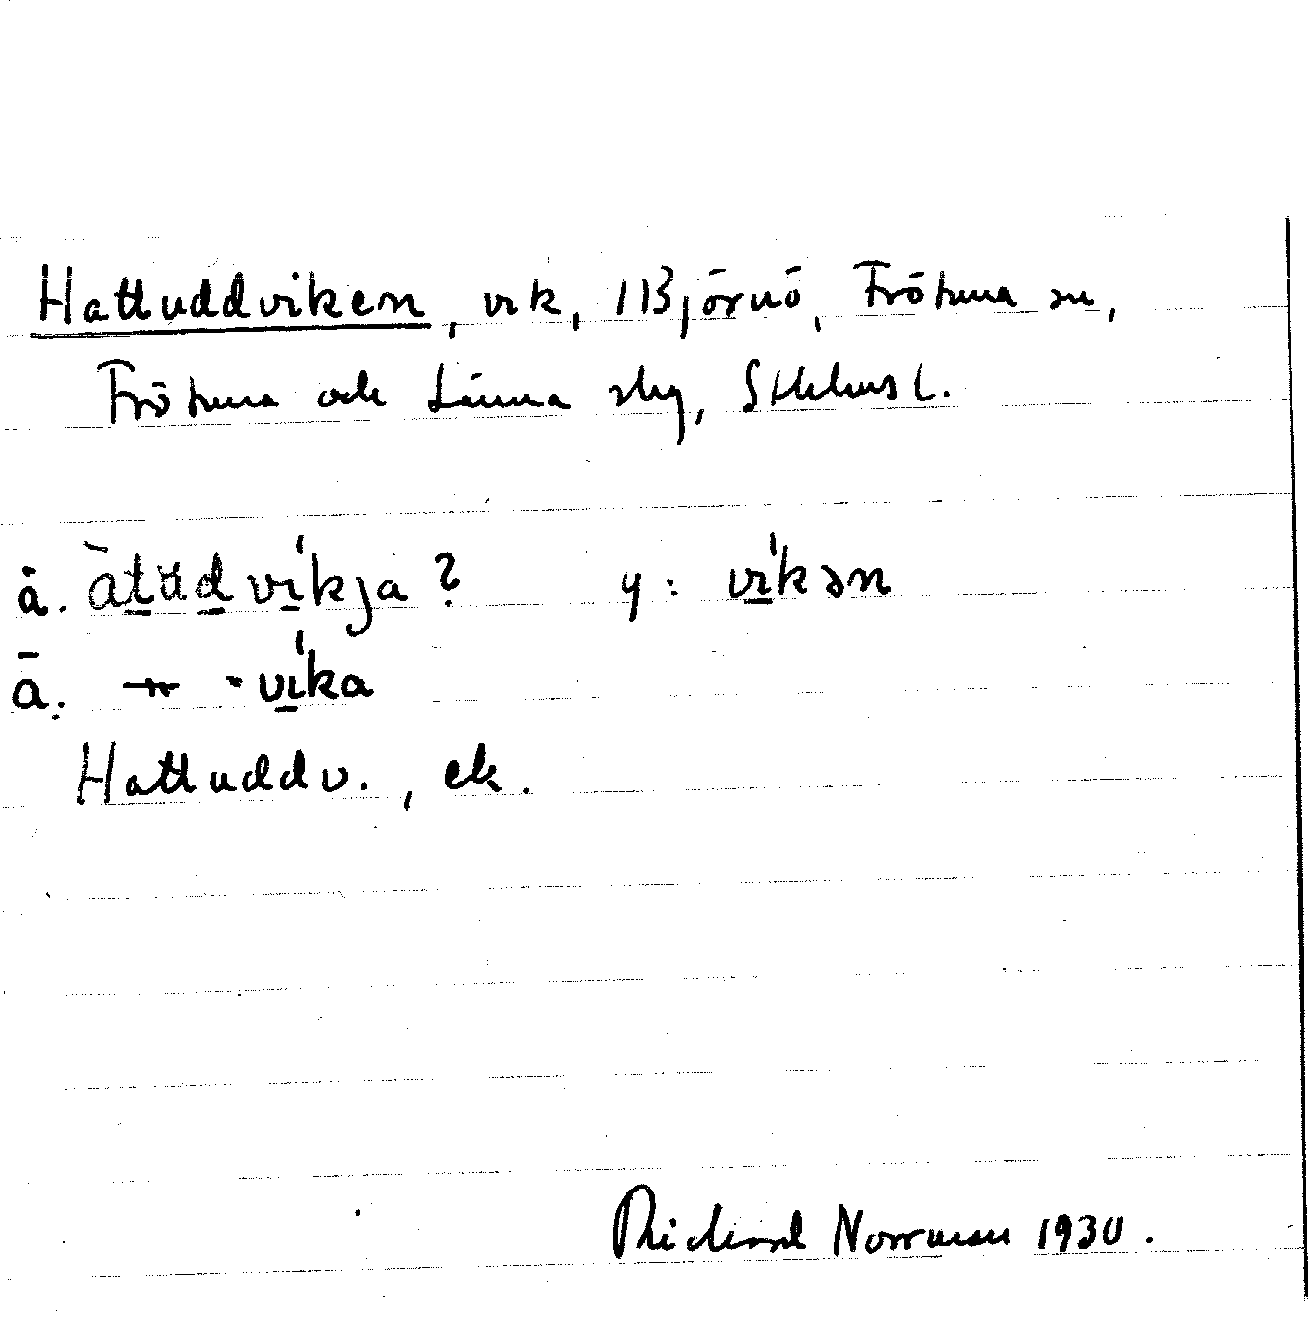 Hattuddviken, vik, i Björnö, Frötuna sn,
Frötuna och Länna skg, Sthlms l.
ä. àtu̇dvi̍kja? y: vi̍kən
ä. –"– -vi̍ka
Hattuddv., ek.
Rickard Norrman 1930.